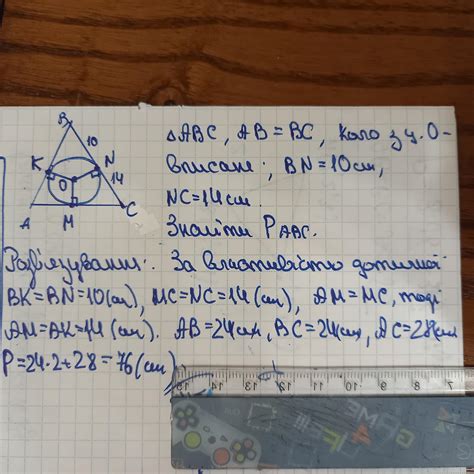 B
10
K
N
O
14
A
M
C
△ABC, AB = BC, коло з ц. O-
вписане; BN = 10 см,
NC = 14 см.
Знайти P ABC.
Розв'язування: За властивістю дотичної
BK = BN = 10 (см), MC = NC = 14 (см), AM = MC, тоді
AM = BK = 14 (см). AB = 24 см, BC = 24 см, AC = 28 см
P = 24·2 + 28 = 76 (см)
15 14 13 12 11 10 9 8 7 6
GAME